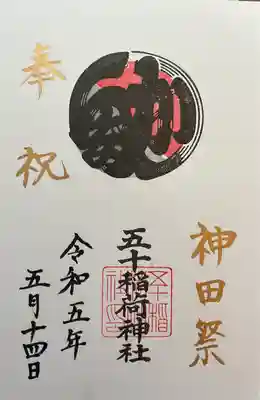 奉祝
神田祭
五十稲荷神社
令和五年
五月十四日